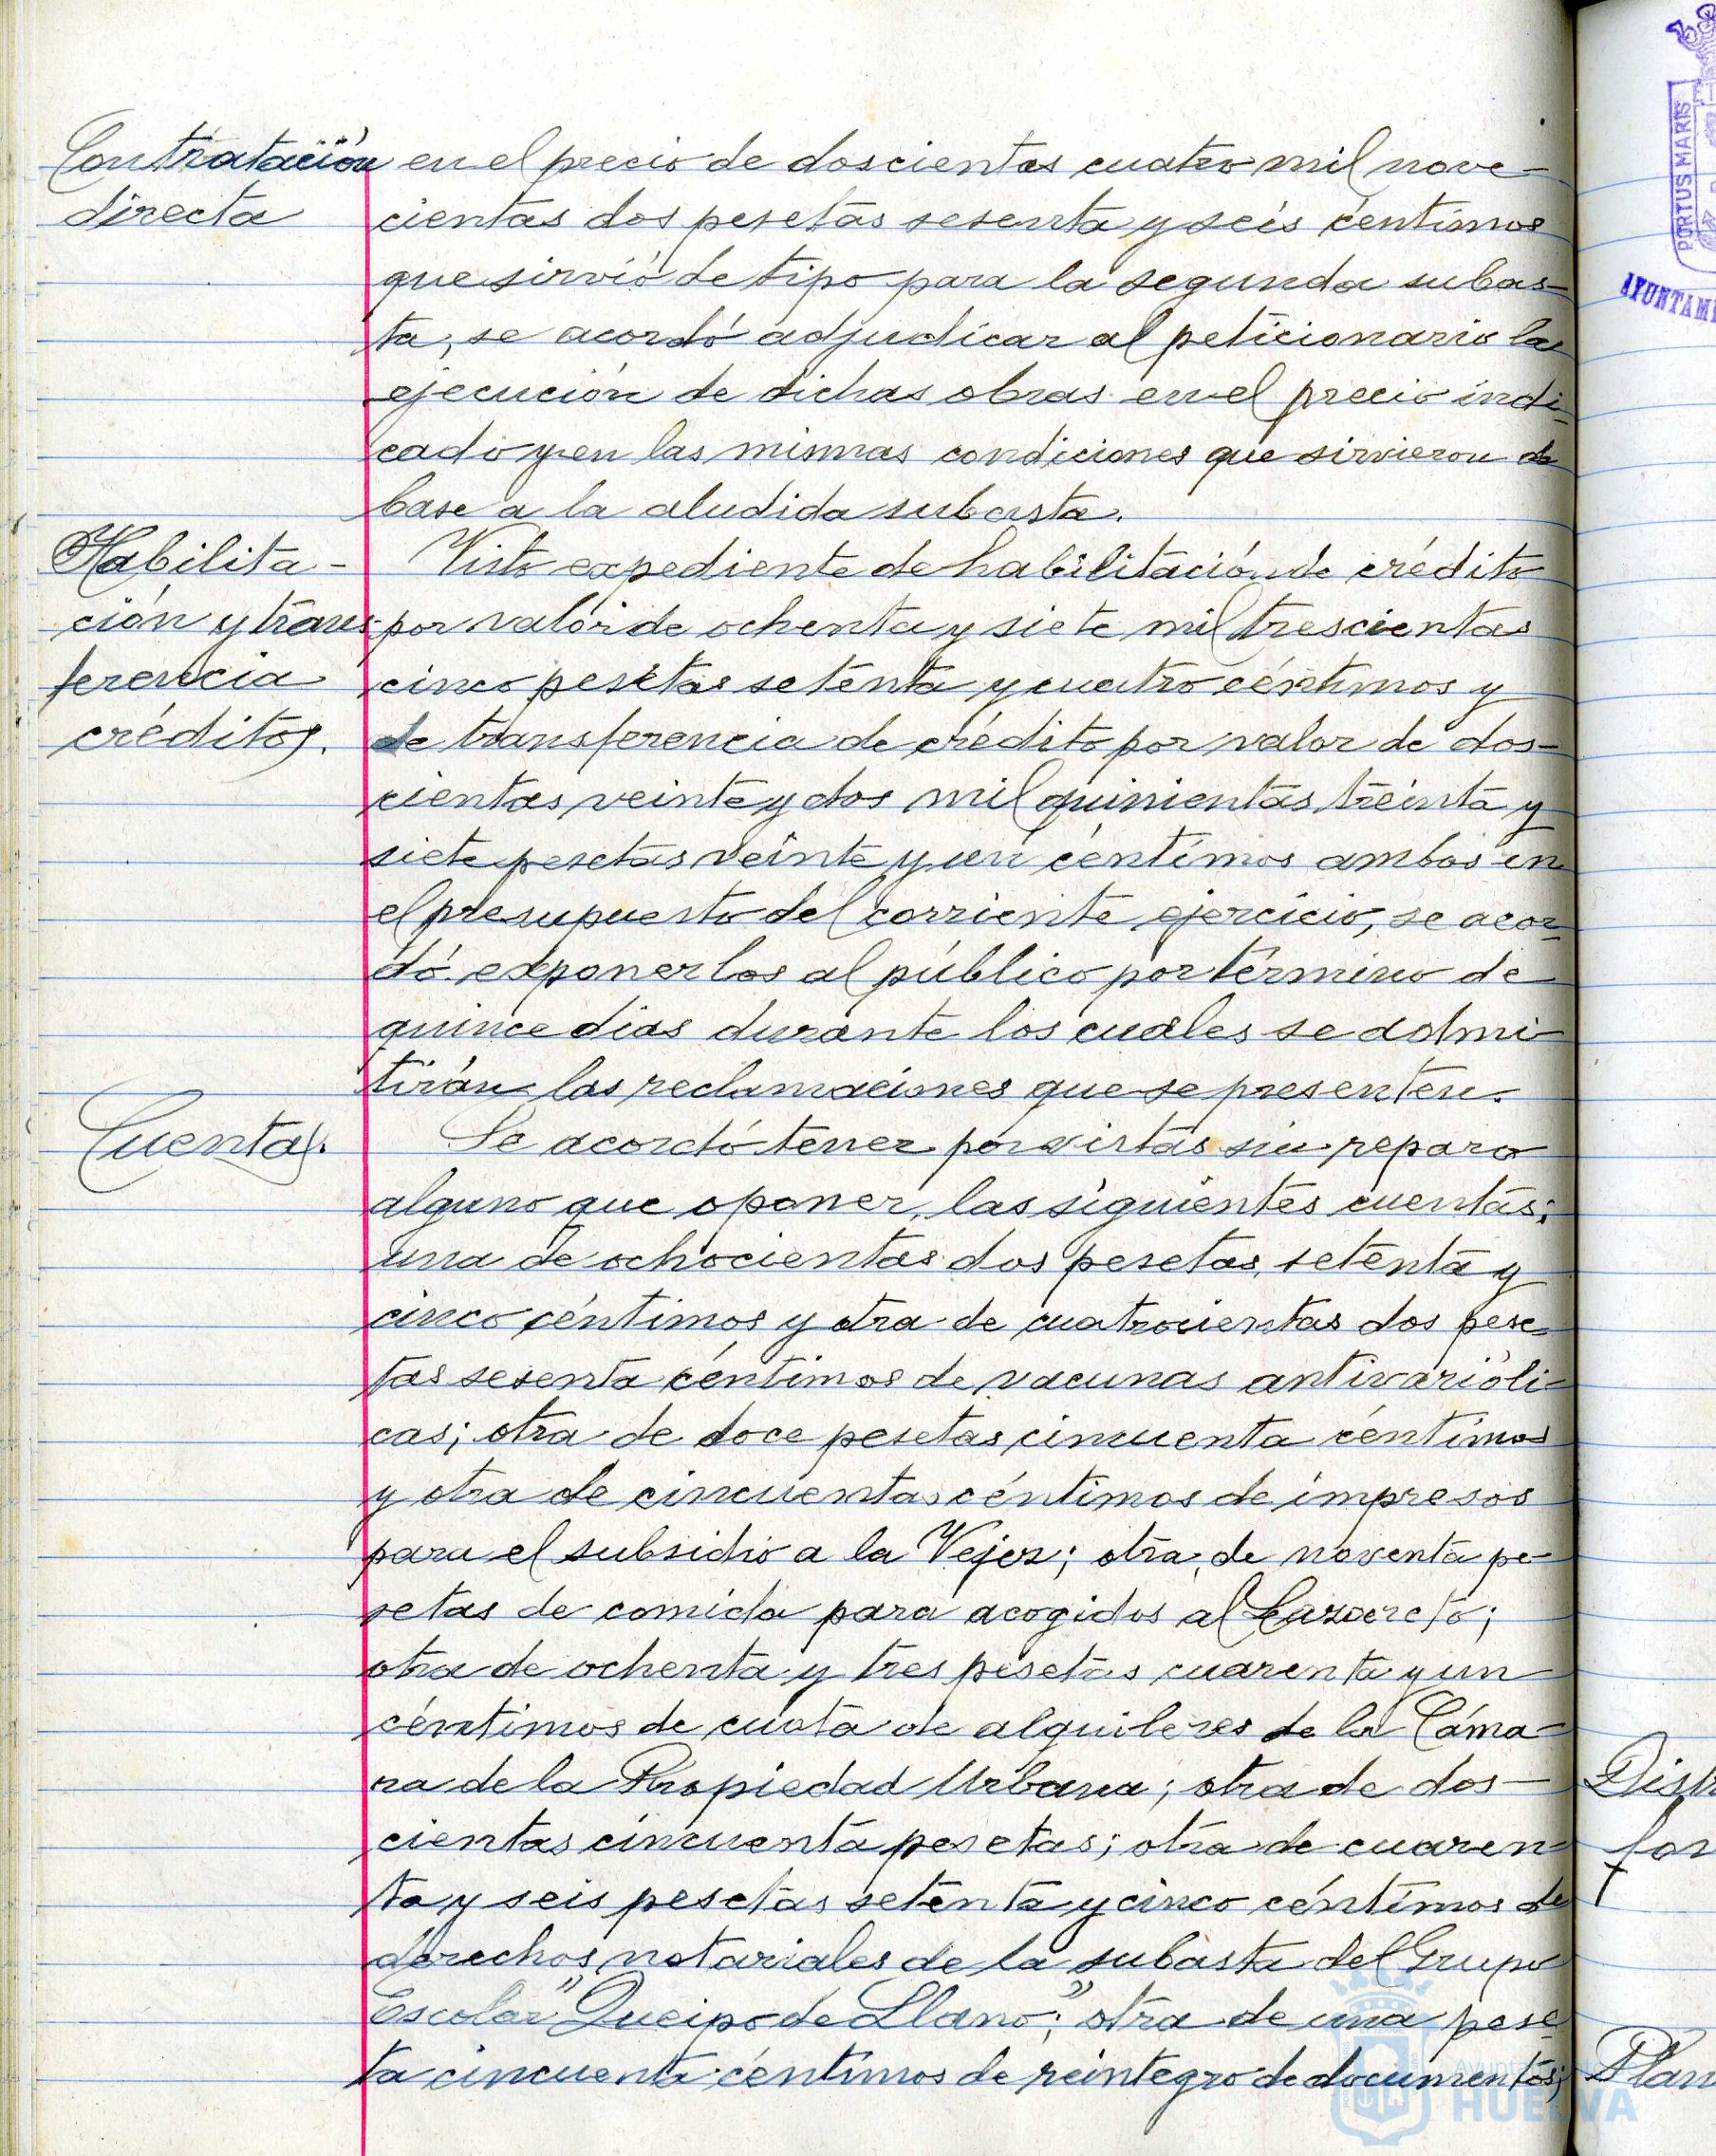 Contratación
directa
en el precio de doscientas cuatro mil nove-
cientas dos pesetas sesenta y seis céntimos
que sirvió de tipo para la segunda subas-
ta, se acordó adjudicar al peticionario la
ejecución de dichas obras en el precio indi-
cado y en las mismas condiciones que sirvieron de
base a la aludida subasta.
Habilita-
ción y trans-
ferencia
créditos.
Visto expediente de habilitación de crédito
por valor de ochenta y siete mil trescientas
cinco pesetas setenta y cuatro céntimos y
de transferencia de crédito por valor de dos-
cientas veinte y dos mil quinientas treinta y
siete pesetas veinte y un céntimos ambos en
el presupuesto del corriente ejercicio, se acor-
dó exponerlos al público por término de
quince dias durante los cuales se admi-
tirán las reclamaciones que se presenten.
Cuentas.
Se acordó tener por vistas sin reparo
alguno que oponer, las siguientes cuentas:
una de ochocientas dos pesetas, setenta y
cinco céntimos y otra de cuatrocientas dos pese-
tas sesenta céntimos de vacunas antivarióli-
cas; otra de doce pesetas cincuenta céntimos
y otra de cincuenta céntimos de impresos
para el subsidio a la Vejez; otra de noventa pe-
setas de comida para acogidos al Lazareto;
otra de ochenta y tres pesetas cuarenta y un
céntimos de cuota de alquileres de la Cáma-
ra de la Propiedad Urbana; otra de dos-
cientas cincuenta pesetas; otra de cuaren-
ta y seis pesetas setenta y cinco céntimos de
derechos notariales de la subasta del Grupo
Escolar "Queipo de Llano"; otra de una pese-
ta cincuenta céntimos de reintegro de documentos;
PORTUS MARIS
AYUNTAMI
Distr
for
Plan
Ayuntamiento
HUELVA